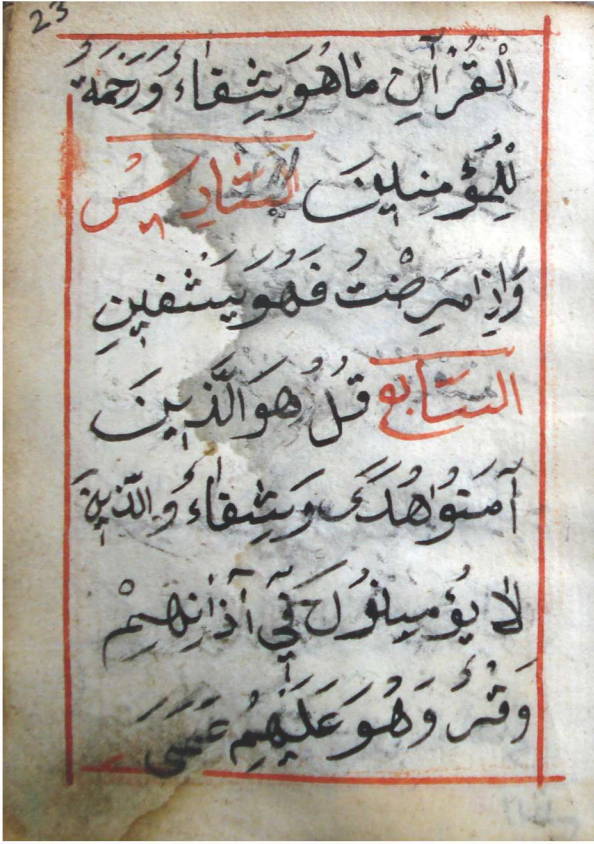 23
الْقُرْآنِ مَاهُوَ شِفَاءُ وَرَحْمَةُ
لِلْمُؤْمِنِينَ السَّادِسْ
وَإِذَا مَرِضْتُ فَهُوَ يَشْفِينِ
السَّابِعْ قُلْ هُوَ الَّذِينَ
آمَنُوا هُدًى وَشِفَاءُ وَالَّذِينَ
لَا يُؤْمِنُونَ فِي آذَانِهِمْ
وَقْرُ وَهُوَ عَلَيْهِمْ عَمًى